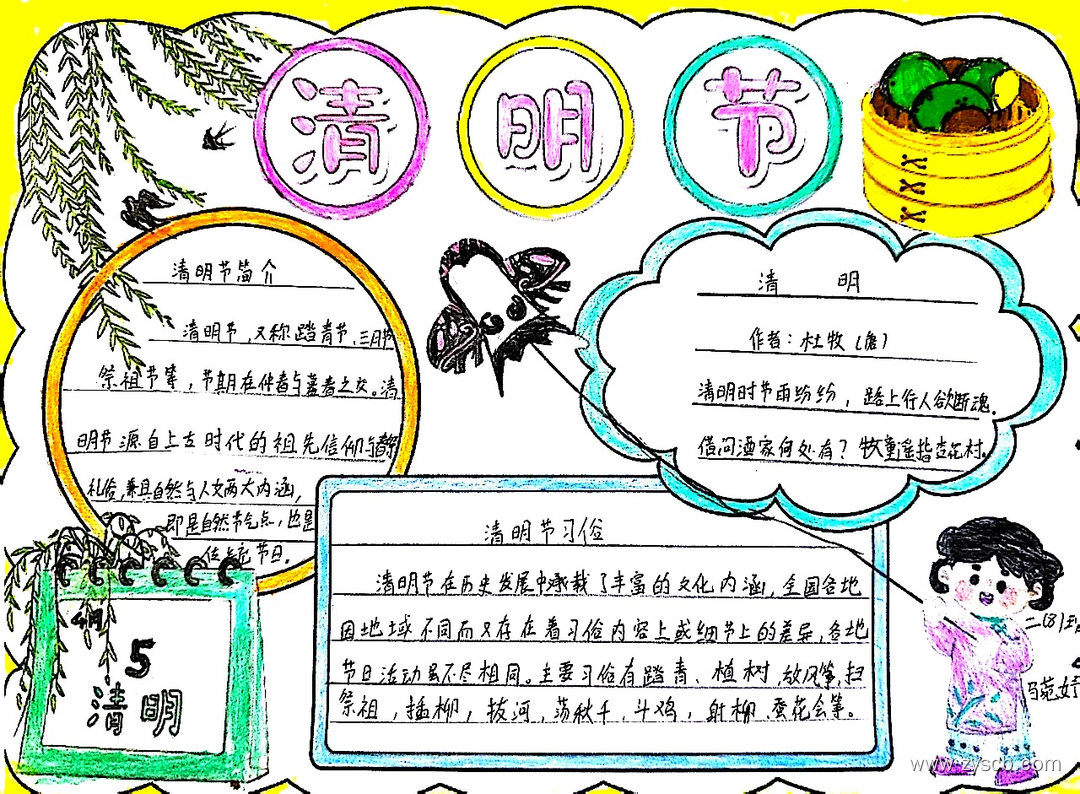 清明节
清明节简介
清明节，又称踏青节、三月节
祭祖节等，节期在仲春与暮春之交。清
明节源自上古时代的祖先信仰与春祭
礼俗，兼具自然与人文两大内涵，
即是自然节气点，也是
传统节日。
清 明
作者：杜牧（唐）
清明时节雨纷纷，路上行人欲断魂。
借问酒家何处有？牧童遥指杏花村。
清明节习俗
清明节在历史发展中承载了丰富的文化内涵，全国各地
因地域不同而又存在着习俗内容上或细节上的差异，各地
节日活动虽不尽相同。主要习俗有踏青、植树、放风筝、扫
祭祖，插柳，拔河，荡秋千，斗鸡，射柳、蚕花会等。
4月
5
清明
二(8)班
www.zyscb.com